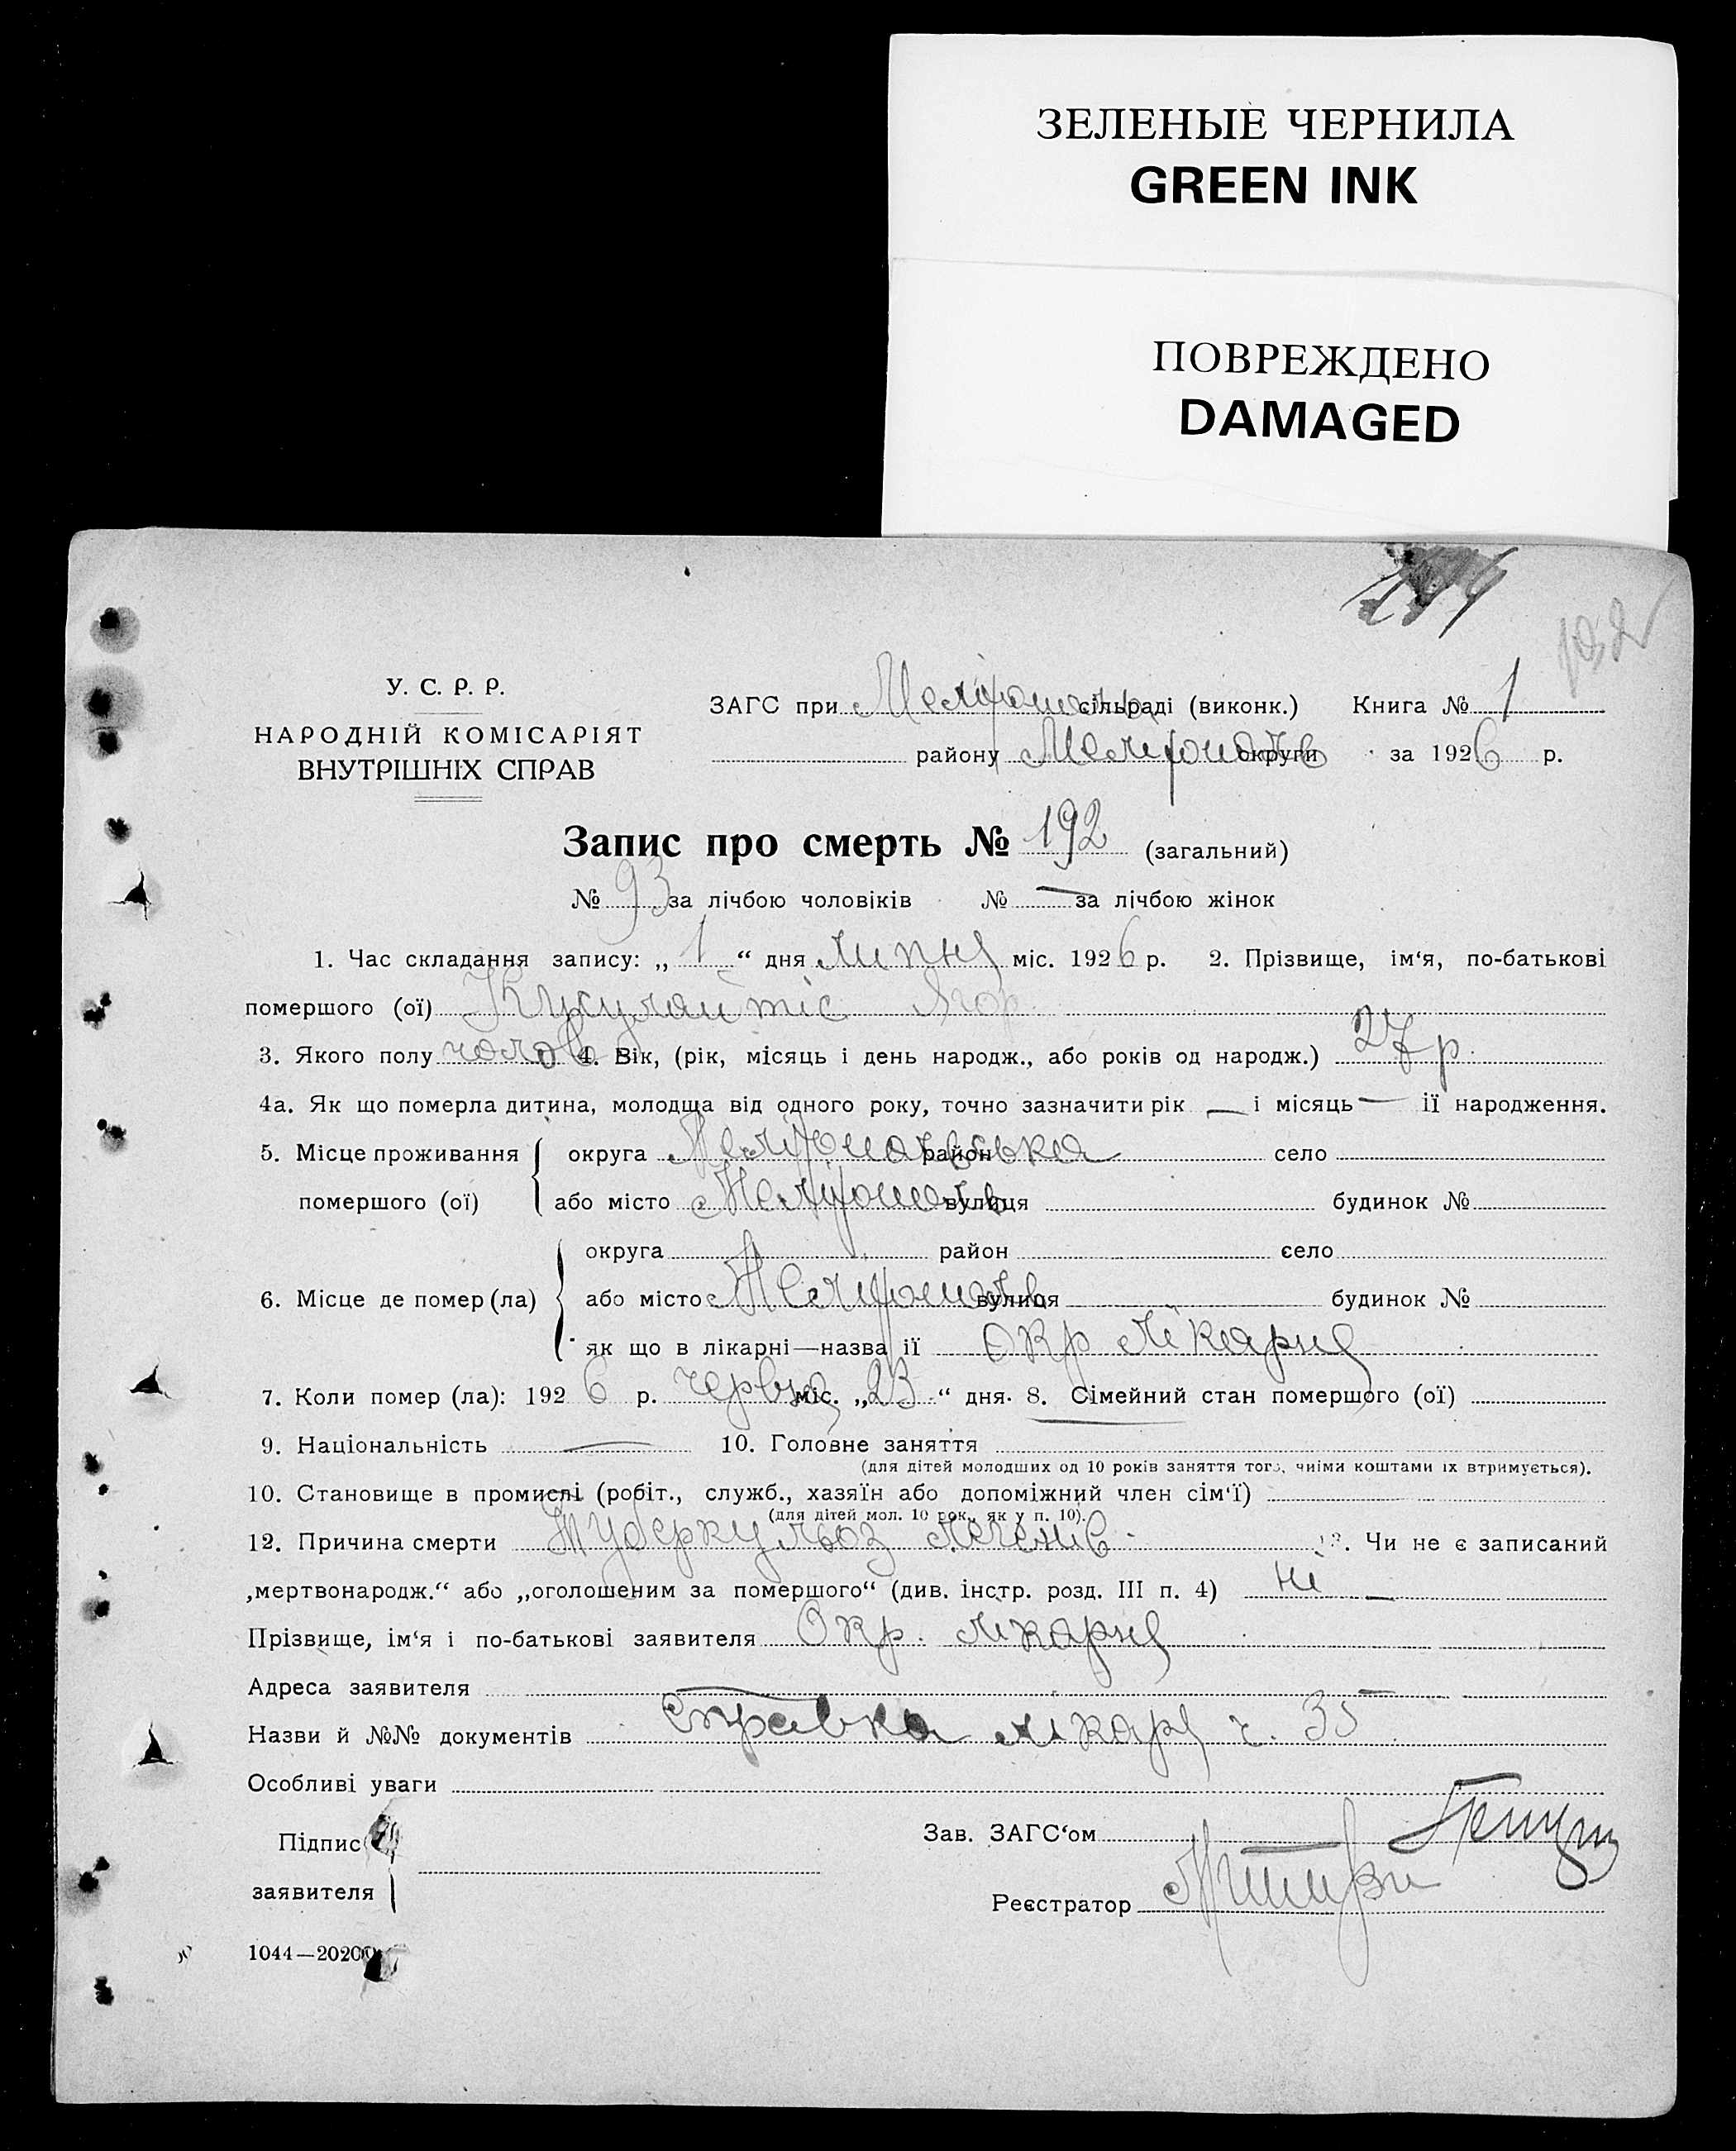 ЗЕЛЕНЫЕ ЧЕРНИЛА
GREEN INK
ПОВРЕЖДЕНО
DAMAGED
192
У. С. Р. Р.
НАРОДНІЙ КОМІСАРІЯТ
ВНУТРІШНІХ СПРАВ
ЗАГС при сільраді (виконк.) Книга № 1
району Мелитопольс округи за 1926 р.
Запис про смерть № 192 (загальний)
№ 93 за лічбою чоловіків № — за лічбою жінок
1. Час складання запису: „ 1 “ дня липня міс. 1926 р. 2. Прізвище, ім‘я, по-батькові
помершого (ої) Ягор
3. Якого полу чолов 4. Вік, (рік, місяць і день народж., або років од народж.) 27 р.
4а. Як що померла дитина, молодща від одного року, точно зазначити рік — і місяць — її народження.
5. Місце проживання округа район село
помершого (ої) або місто вулиця будинок №
округа район село
6. Місце де помер (ла) або місто вулиця будинок №
як що в лікарні—назва її Окр лікарня
7. Коли помер (ла): 1926 р. червня міс. „ 23 “ дня. 8. Сімейний стан помершого (ої)
9. Національність — 10. Головне заняття
(для дітей молодших од 10 років заняття того, чиїми коштами їх втримується).
10. Становище в промислі (робіт., служб., хазяїн або допоміжний член сім‘ї)
(для дітей мол. 10 рок., як у п. 10).
12. Причина смерти Туберкульоз легенів 13. Чи не є записаний
„мертвонародж.“ або „оголошеним за помершого“ (див. інстр. розд. III п. 4) ні —
Прізвище, ім‘я і по-батькові заявителя Окр. лікарня
Адреса заявителя —
Назви й №№ документів Справка лікар ч. 35
Особливі уваги
Підпис Зав. ЗАГС‘ом
заявителя Реєстратор
1044—20200